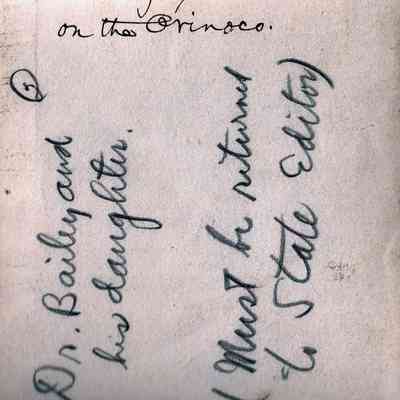 on the Orinoco.
5
Dr. Bailey and
his daughter.
(Must be returned
to State Editor)